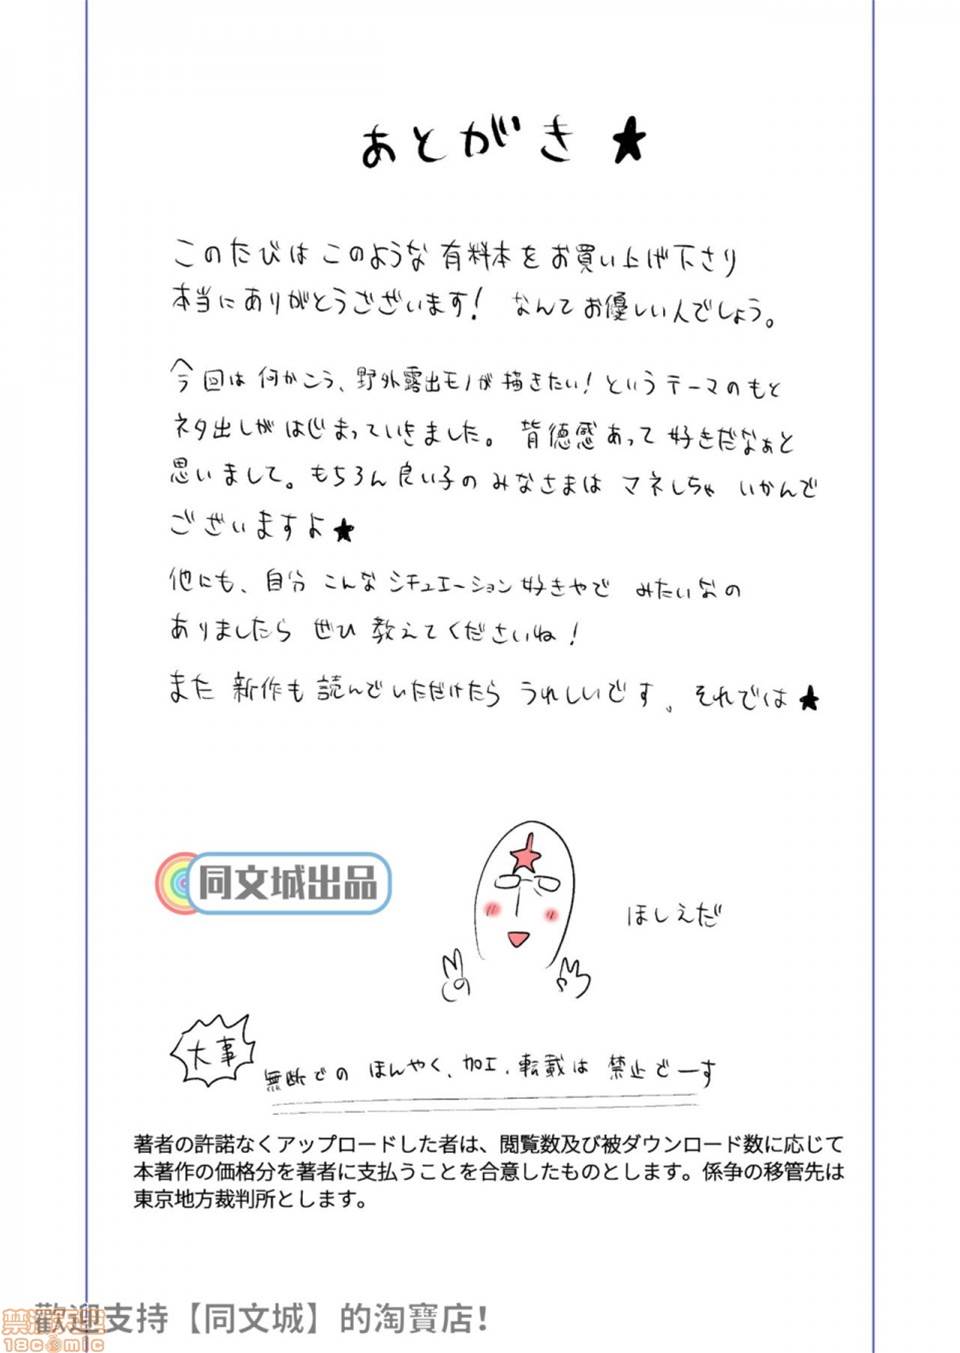 あとがき★
このたびは このような 有料本を お買い上げ下さり
本当にありがとうございます! なんてお優しい人でしょう。
今回は 何かこう、野外露出モノが 描きたい!というテーマのもと
ネタ出しが はじまっていきました。 背徳感あって 好きだなぁと
思いまして。もちろん 良い子の みなさまは マネしちゃ いかんで
ございますよ★
他にも、自分 こんな シチュエーション好きやで みたいなの
ありましたら ぜひ 教えてくださいね!
また 新作も 読んでいただけたら うれしいです。それでは★
同文城出品
ほしえだ
大事
無断での ほんやく、加工、転載は 禁止でーす
著者の許諾なくアップロードした者は、閲覧数及び被ダウンロード数に応じて
本著作の価格分を著者に支払うことを合意したものとします。係争の移管先は
東京地方裁判所とします。
歡迎支持【同文城】的淘寶店!
禁漫天堂
18comic